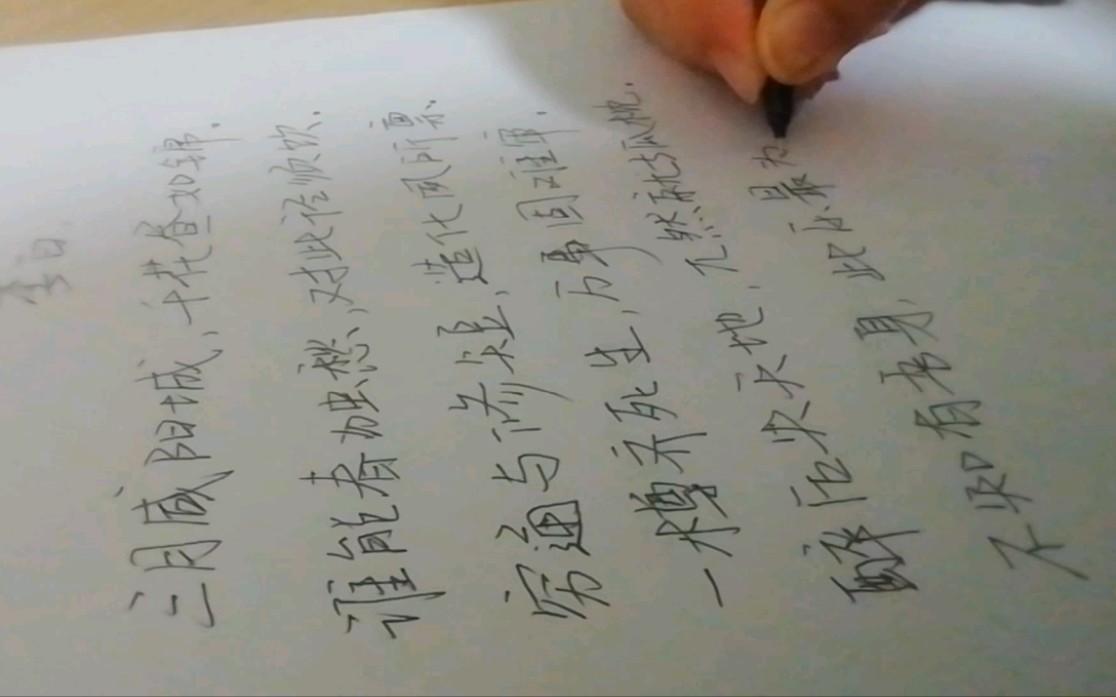 李白
三月咸阳城，千花昼如锦。
谁能春独愁，对此径须饮。
穷通与修短，造化夙所禀。
一樽齐死生，万事固难审。
醉后失天地，兀然就孤枕。
不知有吾身，此乐最为